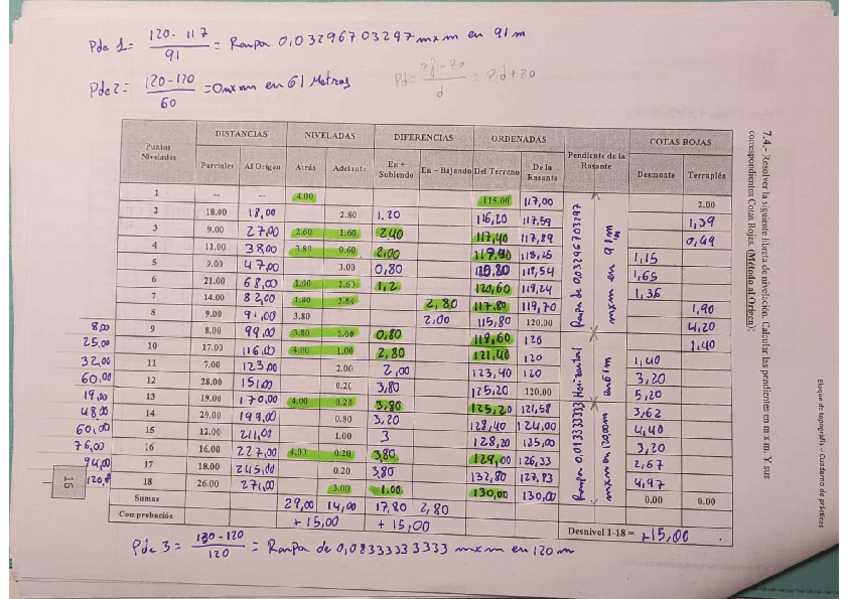 Pde 1 = 120 - 117 / 91 = Rampa 0,03296703297 m x m en 91 m
Pde 2 = 120 - 120 / 60 = 0 m x m en 61 Metros
7.4.- Resolver la siguiente libreta de nivelación. Calcular las pendientes en m x m. Y sus
correspondientes Cotas Rojas. (Método al Origen):
Puntos Nivelados DISTANCIAS NIVELADAS DIFERENCIAS ORDENADAS Pendiente de la Rasante COTAS ROJAS
Parciales Al Origen Atrás Adelante En + Subiendo En - Bajando Del Terreno De la Rasante Desmonte Terraplén
1 -- -- 4.00 115.00 117,00 2.00
2 18.00 18,00 2.80 1,20 116,20 117,59 1,39
3 9.00 27,00 2.60 1.60 2,40 117,40 117,89 0,49
4 11.00 38,00 3.80 0.60 2,00 119,40 118,25 1,15
5 9.00 47,00 3.00 0,80 120,20 118,54 1,65
6 21.00 68,00 1.00 2.60 1,2 120,60 119,24 1,36
7 14.00 82,00 1.80 3.80 2,80 117,80 119,70 1,90
8 9.00 91,00 3.80 2,00 115,80 120.00 4,20
8,00 9 8.00 99,00 3.80 3.00 0,80 118,60 120 1,40
25,00 10 17.00 116,00 4.00 1.00 2,80 121,40 120 1,40
32,00 11 7.00 123,00 2.00 2,00 123,40 120 3,20
60,00 12 28.00 151,00 0.20 3,80 125,20 120.00 5,20
19,00 13 19.00 170,00 4.00 0.20 3,80 125,20 121,58 3,62
48,00 14 29.00 199,00 0.80 3,20 128,40 124,00 4,40
60,00 15 12.00 211,00 1.00 3 128,20 125,00 3,20
76,00 16 16.00 227,00 4.00 0.20 3,80 129,00 126,33 2,67
94,00 17 18.00 245,00 0.20 3,80 132,80 127,83 4,97
18 26.00 271,00 3.00 1.00 130,00 130,00 0.00 0.00
Rampa de 0,03296703297 m x m en 91 m
Horizontal en 61 m
Sumas 29,00 14,00 17,80 2,80
Comprobación + 15,00 + 15,00 Desnivel 1-18 = +15,00
Pde 3 = 130 - 120 / 120 = Rampa de 0,08333333333 m x m en 120 m
16
Bloque de topografía – Cuaderno de prácticas